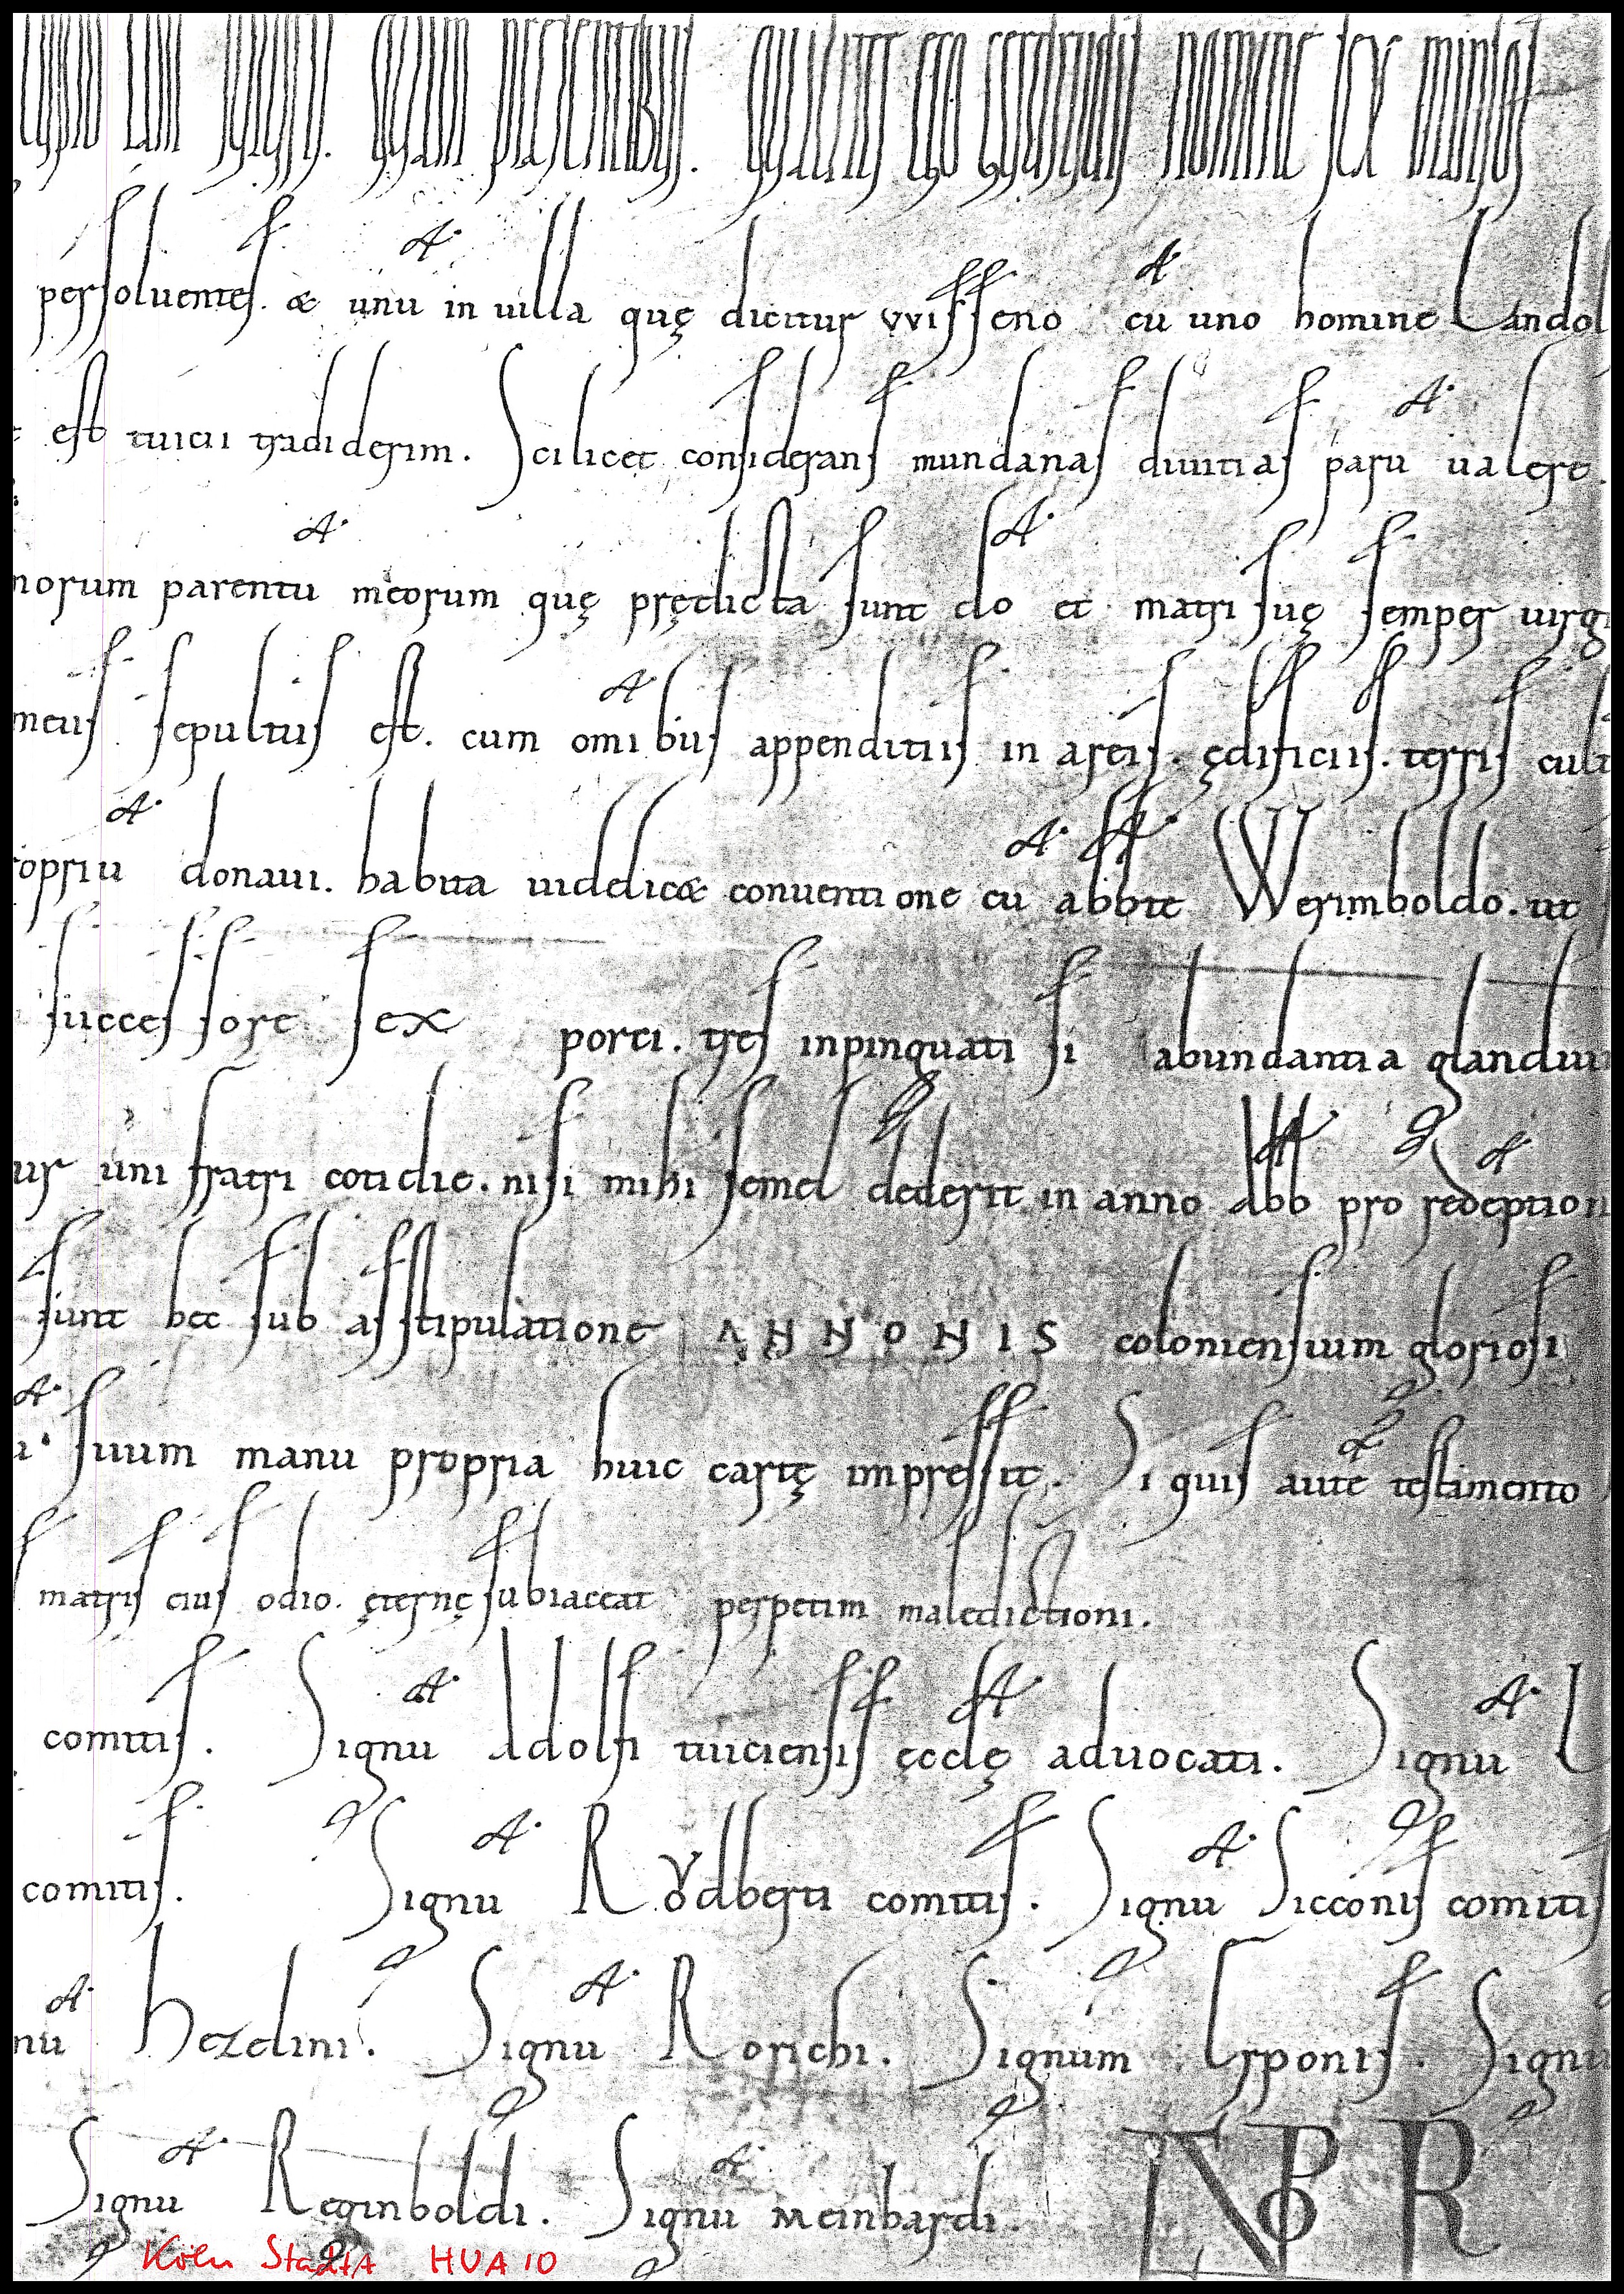 cupio tam futuris. quam presentibus. qualiter ego gerdrudis nomine sex mansos
persoluentes. & unū in uilla quę dicitur vvisseno cū uno homine Landol
est tuicii tradiderim. Scilicet considerans mundanas diuitias parū ualere.
morum parentū meorum quę prędicta sunt do et matri suę semper virgi
meus sepultus est. cum omībus appenditiis in areis. ędificiis. terris cult
ropriū donaui. habita uidelic& conventione cū abbte Werimboldo. ut
successore sex porci. tres inpinguati si abundantia glandiu
ur uni fratri cotidie. nisi mihi semel dederit in anno Abb pro redēption
sunt hec sub astipulatione ANNONIS coloniensium gloriosi
suum manu propria huic cartę impressit. Si quis autē testamento
matris eius odio. ęternę subiaceat perpetim maledictioni.
comitis. Signū Adolfi tuiciensis ęcclę advocati. Signū
comitis. Signū Rvodberti comitis. Signū Sicconis comitis
nū hezelini. Signū Rorichi. Signum Erponis. Signū
Signū Reginboldi. Signū Meinhardi. NOP R
Köln StadtA HUA 10